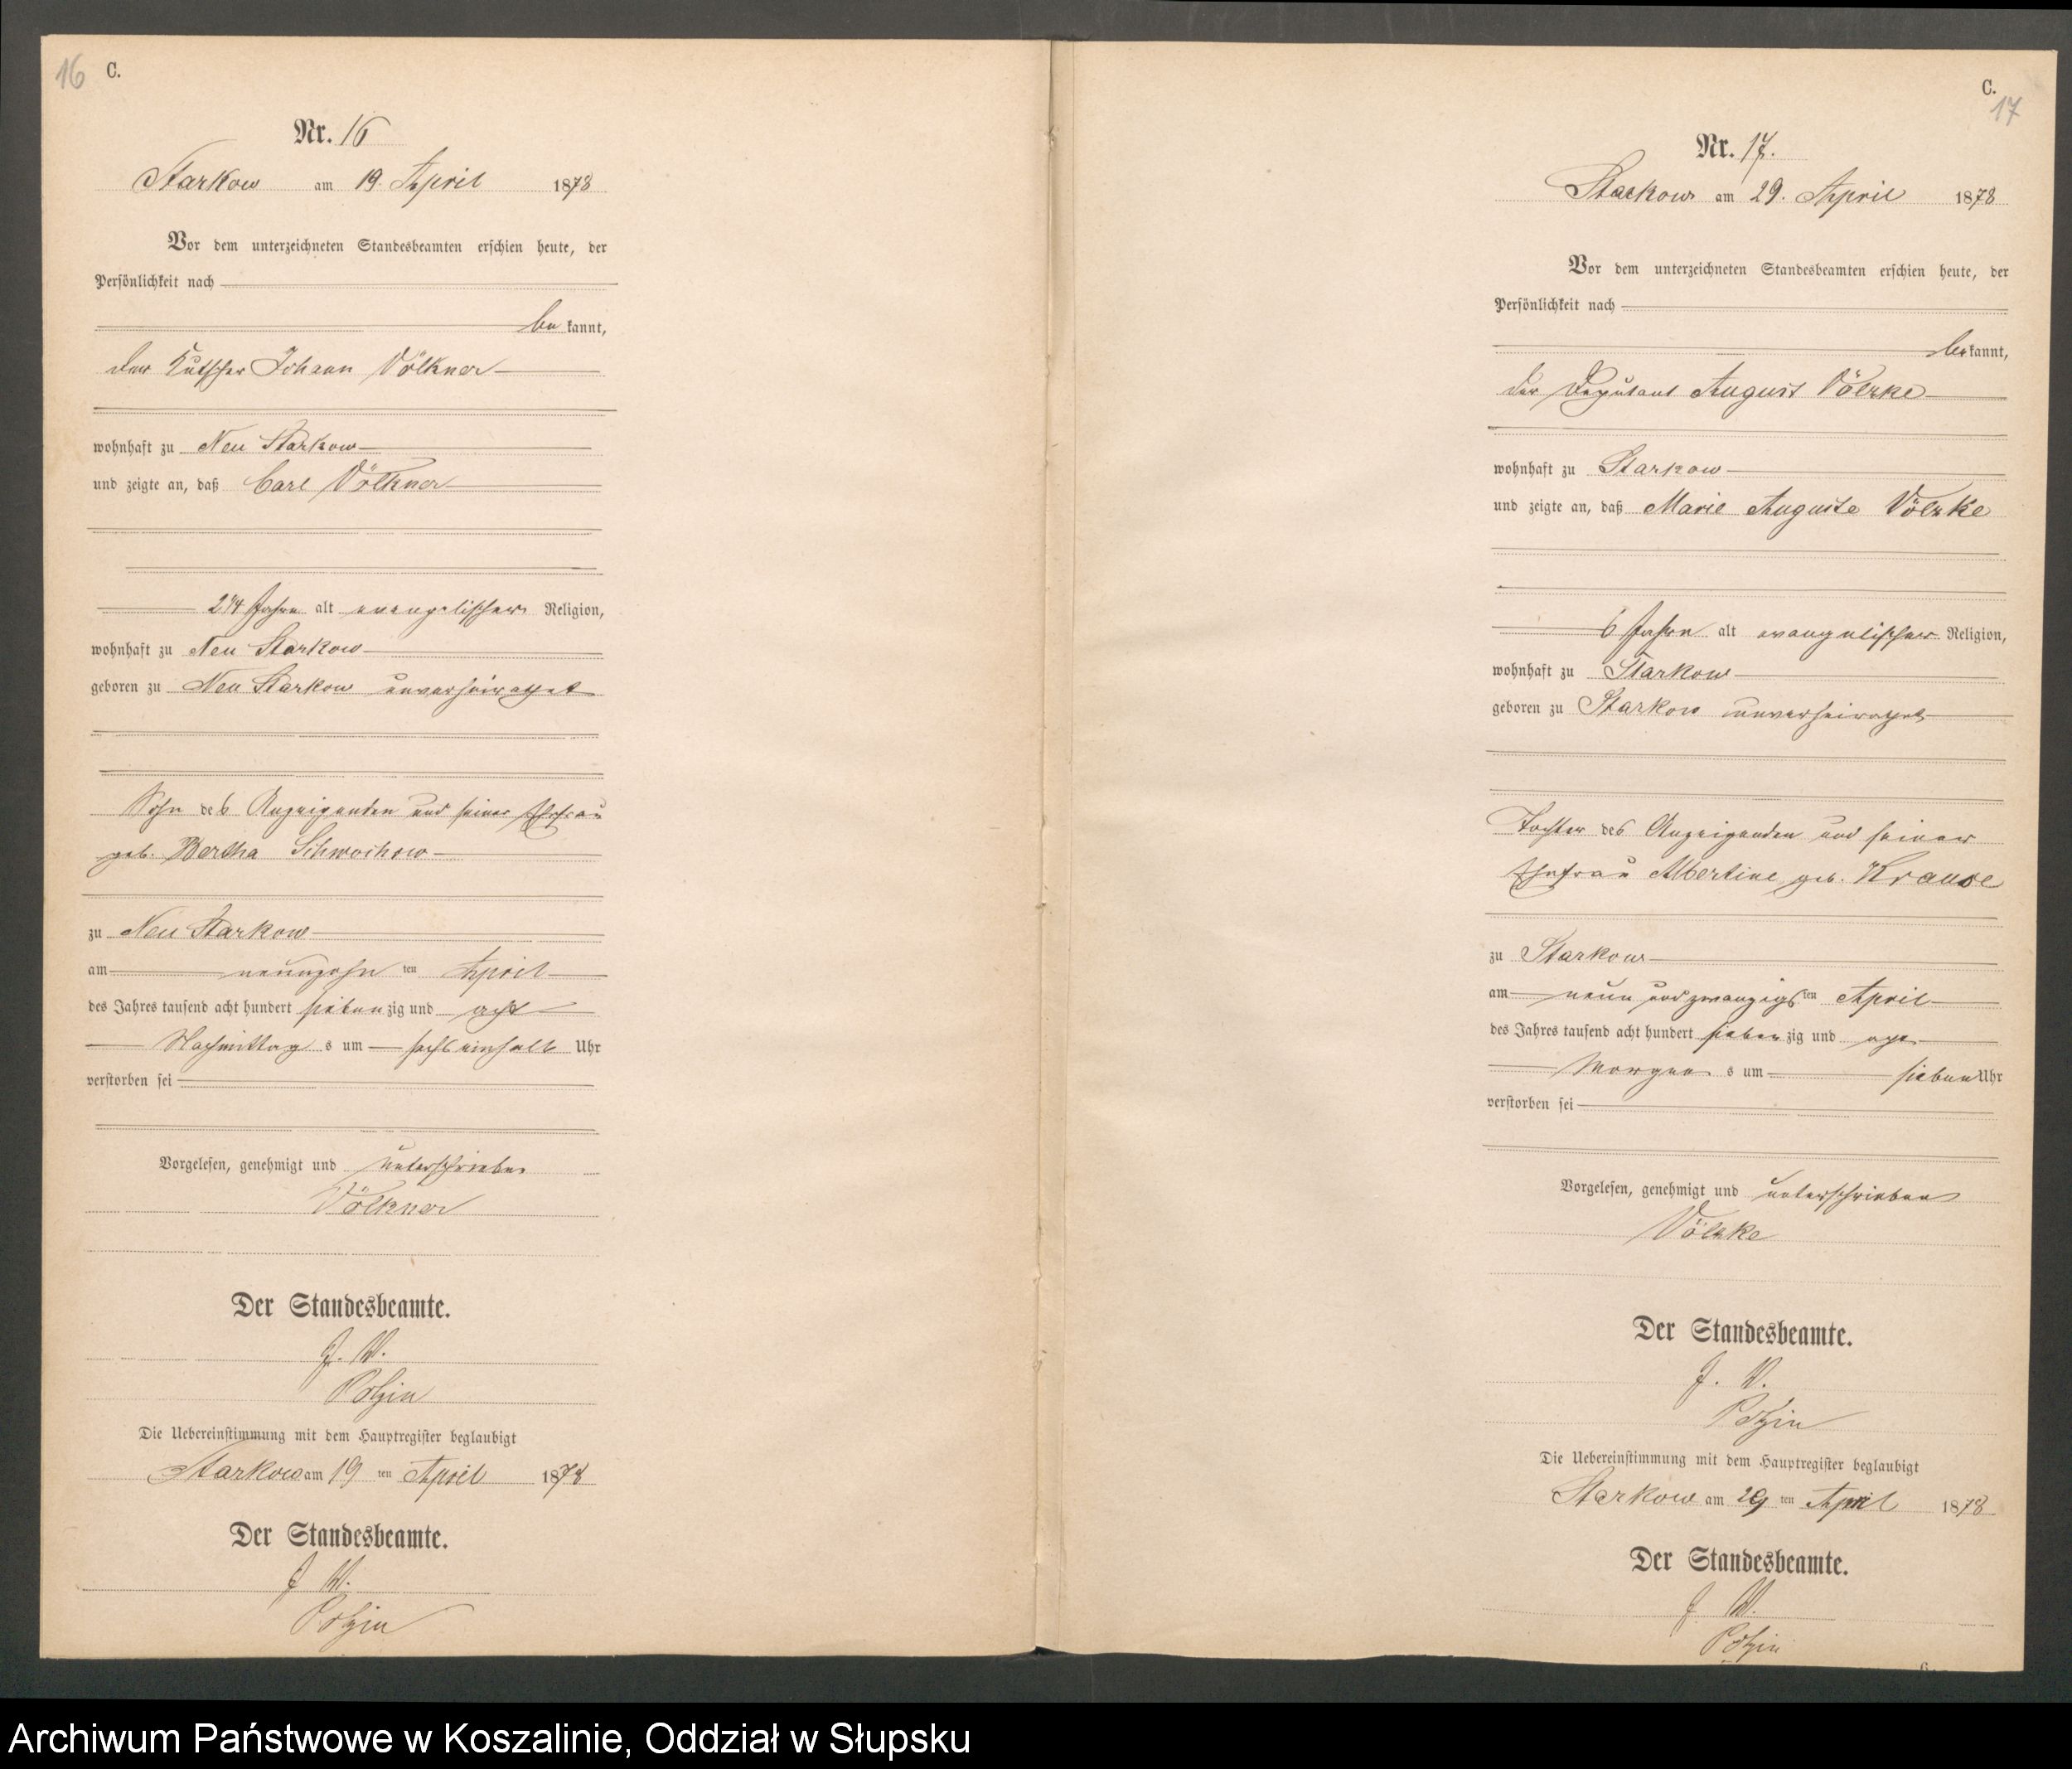 16 C.
Nr. 16
Starkow am 19. April 1878
Vor dem unterzeichneten Standesbeamten erschien heute, der
Persönlichkeit nach
be kannt,
der Kutscher Johann Völkner
wohnhaft zu Neu Starkow
und zeigte an, daß Carl Völkner
Jahre alt evangelischer Religion,
wohnhaft zu Neu Starkow
geboren zu Neu Starkow unverheirathet
Sohn des Anzeigenden und seiner Ehefrau
geb. Bertha Schwochow
zu Neu Starkow
am neunzehn ten April
des Jahres tausend acht hundert sieben zig und acht
Nachmittag s um sechs einhalb Uhr
verstorben sei
Vorgelesen, genehmigt und unterschrieben
Völkner
Der Standesbeamte.
J. V.
Polzin
Die Uebereinstimmung mit dem Hauptregister beglaubigt
Starkow am 19 ten April 1878
Der Standesbeamte.
J V.
Polzin
C.
17
Nr. 17.
Starkow am 29. April 1878
Vor dem unterzeichneten Standesbeamten erschien heute, der
Persönlichkeit nach
be kannt,
der Deputant August Völzke
wohnhaft zu Starkow
und zeigte an, daß Marie Auguste Völzke
6 Jahre alt evangelischer Religion,
wohnhaft zu Starkow
geboren zu Starkow unverheirathet
Tochter des Anzeigenden und seiner
Ehefrau Albertine geb. Krause
zu Starkow
am neun und zwanzigs ten April
des Jahres tausend acht hundert sieben zig und acht
Morgen s um sieben Uhr
verstorben sei
Vorgelesen, genehmigt und unterschrieben
Völzke
Der Standesbeamte.
J. V.
Polzin
Die Uebereinstimmung mit dem Hauptregister beglaubigt
Starkow am 29 ten April 1878
Der Standesbeamte.
J V.
Polzin
Archiwum Państwowe w Koszalinie, Oddział w Słupsku